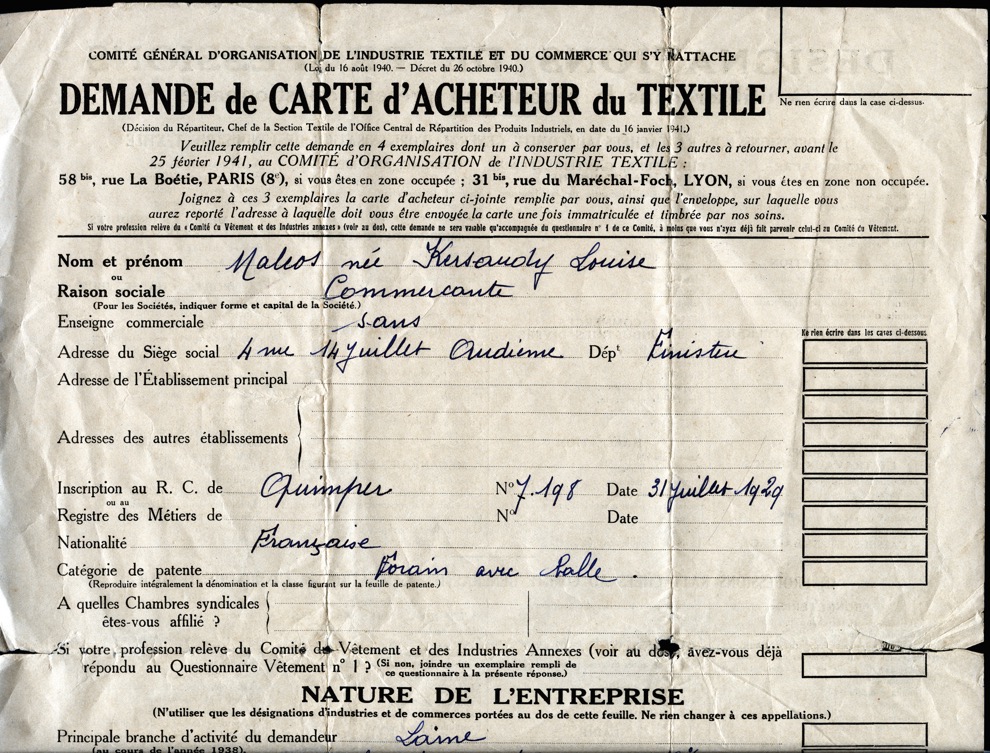 COMITÉ GÉNÉRAL D'ORGANISATION DE L'INDUSTRIE TEXTILE ET DU COMMERCE QUI S'Y RATTACHE
(Loi du 16 août 1940. — Décret du 26 octobre 1940.)
DEMANDE de CARTE d'ACHETEUR du TEXTILE
Ne rien écrire dans la case ci-dessus.
(Décision du Répartiteur, Chef de la Section Textile de l'Office Central de Répartition des Produits Industriels, en date du 16 janvier 1941.)
Veuillez remplir cette demande en 4 exemplaires dont un à conserver par vous, et les 3 autres à retourner, avant le
25 février 1941, au COMITÉ D'ORGANISATION de l'INDUSTRIE TEXTILE :
58 bis, rue La Boétie, PARIS (8e), si vous êtes en zone occupée ; 31 bis, rue du Maréchal-Foch, LYON, si vous êtes en zone non occupée.
Joignez à ces 3 exemplaires la carte d'acheteur ci-jointe remplie par vous, ainsi que l'enveloppe, sur laquelle vous
aurez reporté l'adresse à laquelle doit vous être envoyée la carte une fois immatriculée et timbrée par nos soins.
Si votre profession relève du « Comité du Vêtement et des Industries annexes » (voir au dos), cette demande ne sera valable qu'accompagnée du questionnaire n° 1 de ce Comité, à moins que vous n'ayez déjà fait parvenir celui-ci au Comité du Vêtement.
Nom et prénom Malcos née Kersaudy Louise
ou
Raison sociale Commercante
(Pour les Sociétés, indiquer forme et capital de la Société.)
Enseigne commerciale sans
Ne rien écrire dans les cases ci-dessous
Adresse du Siège social 4 rue 14 Juillet Audierne Dépt Finistère
Adresse de l'Établissement principal
Adresses des autres établissements
Inscription au R. C. de Quimper N° 7.198 Date 31 Juillet 1929
ou au
Registre des Métiers de N° Date
Nationalité Française
Catégorie de patente Forain avec balle .
(Reproduire intégralement la dénomination et la classe figurant sur la feuille de patente.)
A quelles Chambres syndicales
êtes-vous affilié ?
Si votre profession relève du Comité du Vêtement et des Industries Annexes (voir au dos), avez-vous déjà
répondu au Questionnaire Vêtement n° 1 ? (Si non, joindre un exemplaire rempli de
ce questionnaire à la présente réponse.)
NATURE DE L'ENTREPRISE
(N'utiliser que les désignations d'industries et de commerces portées au dos de cette feuille. Ne rien changer à ces appellations.)
Principale branche d'activité du demandeur Laine
(au cours de l'année 1938).